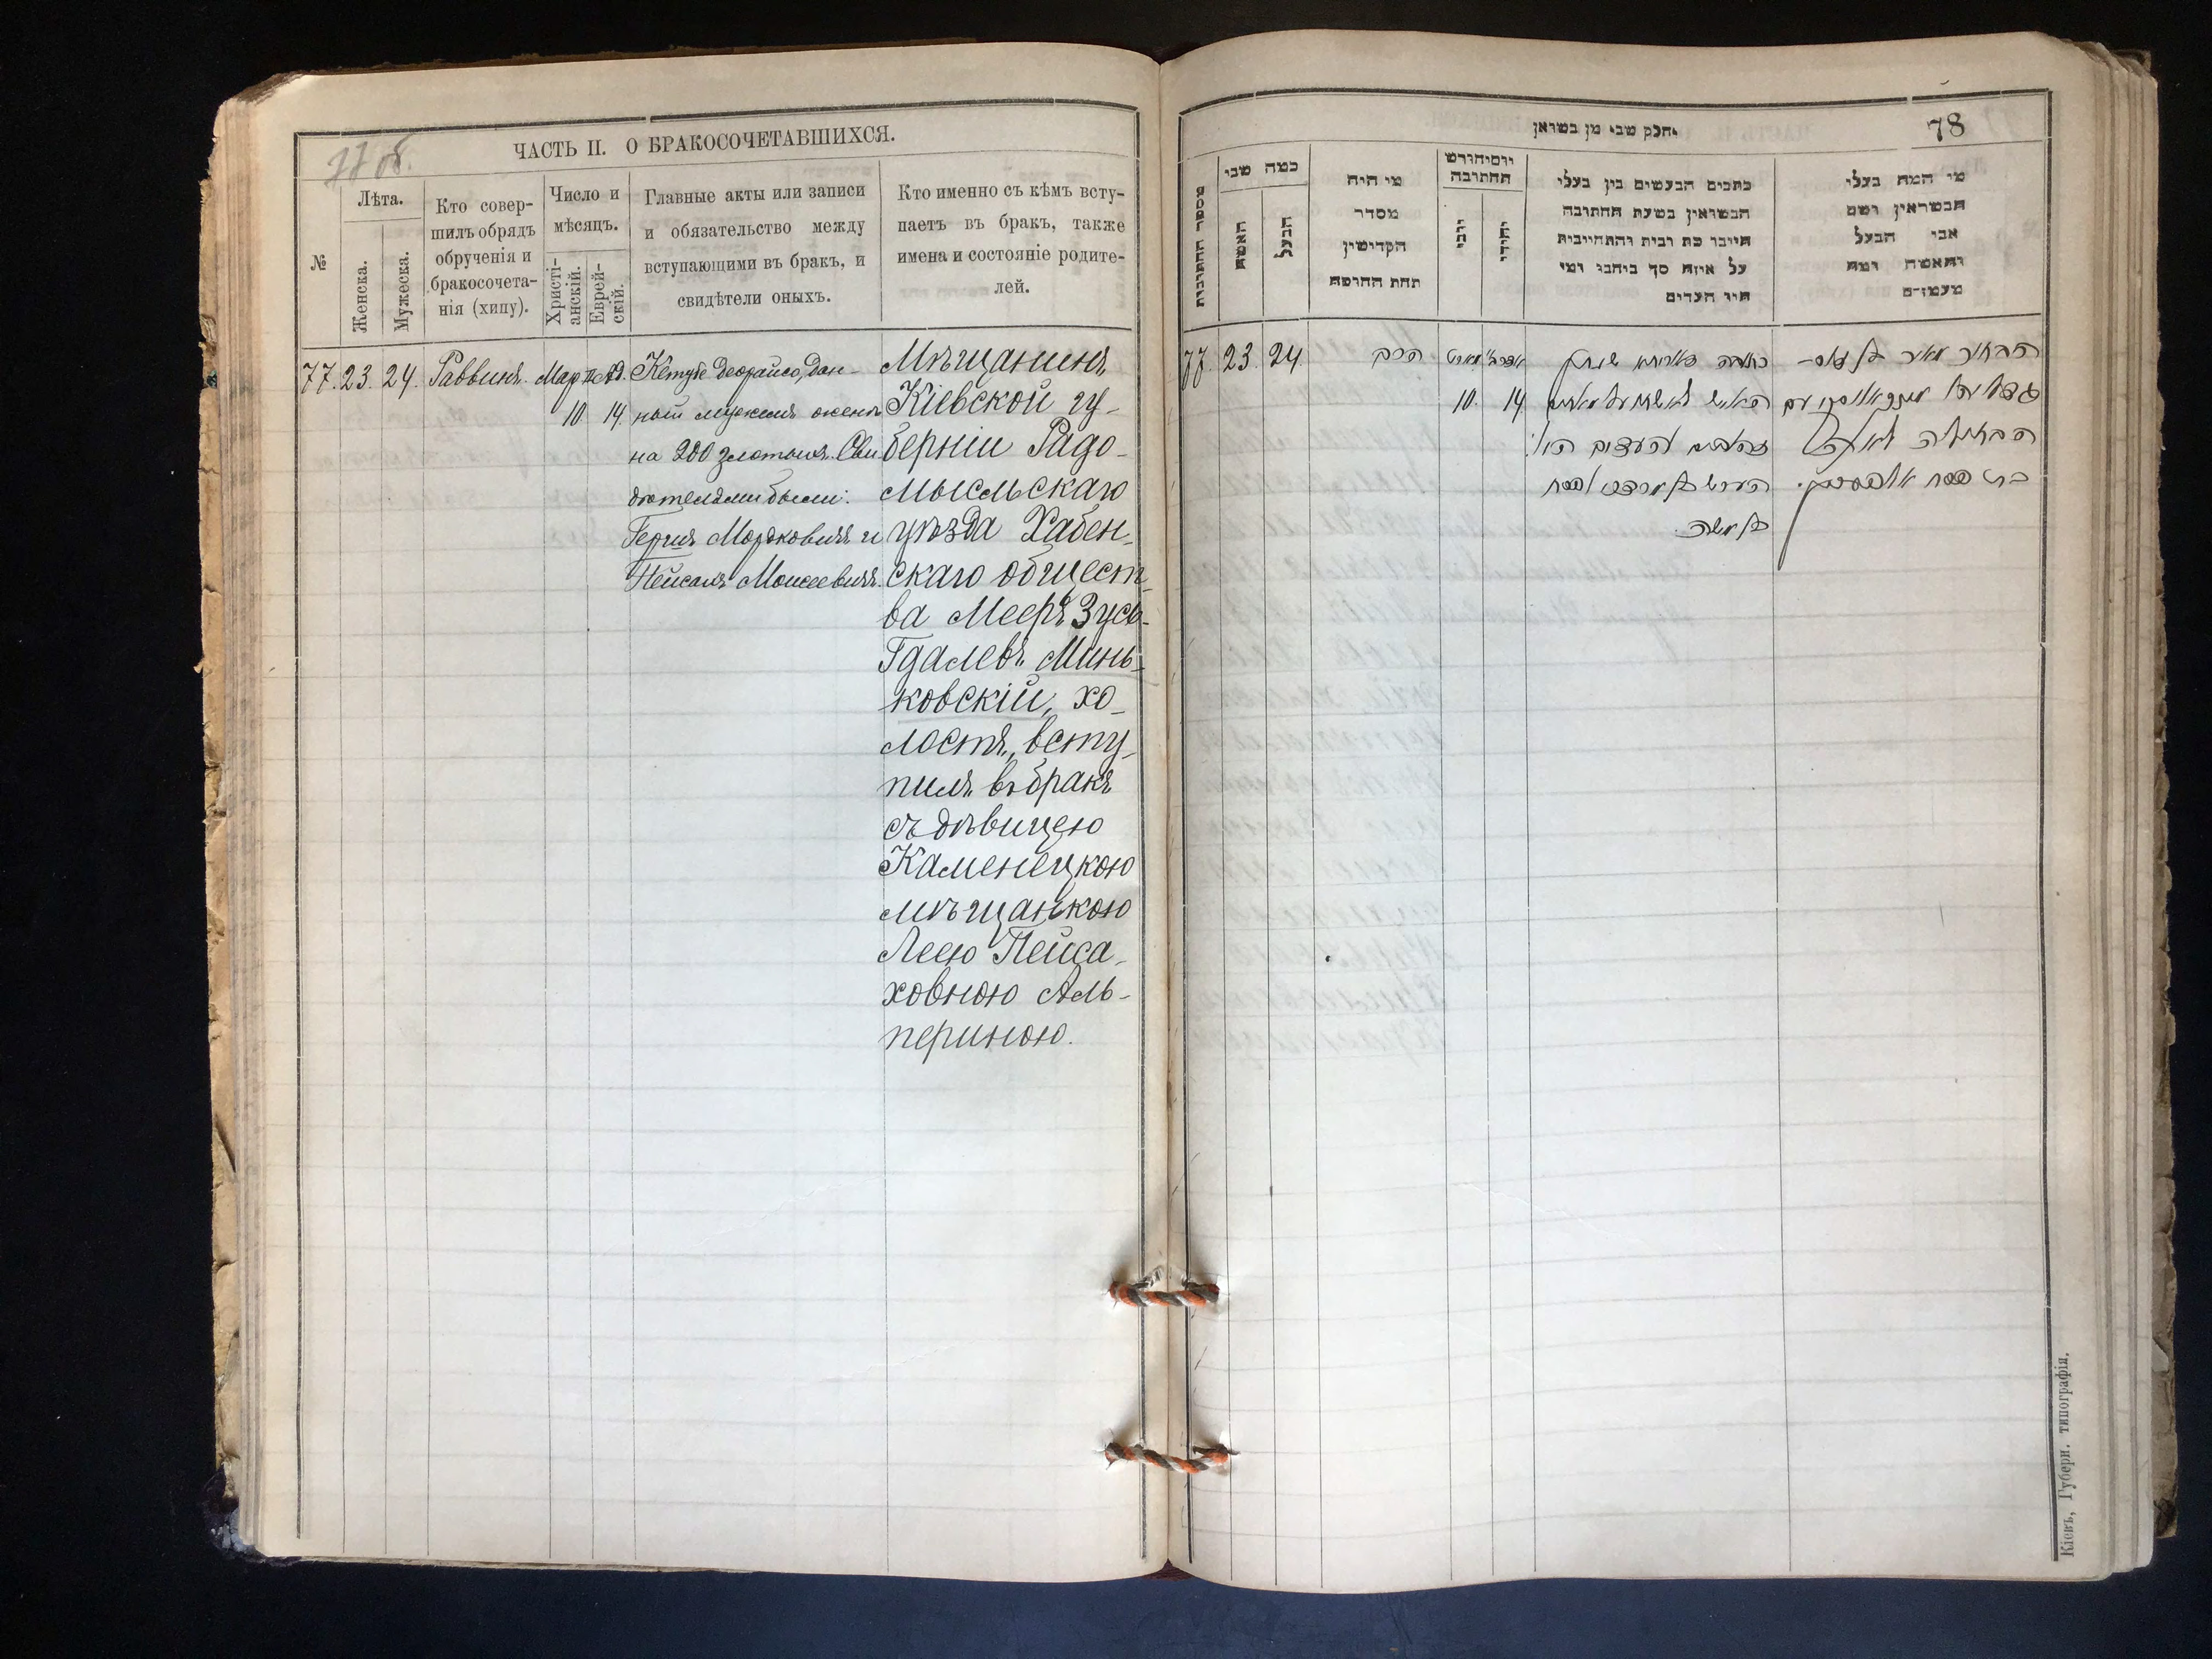 77 об.
ЧАСТЬ II. О БРАКОСОЧЕТАВШИХСЯ.
№
Лѣта.
Женска.
Мужеска.
Кто совер-
шилъ обрядъ
обрученія и
бракосочета-
нія (хипу).
Число и
мѣсяцъ.
Христі-
анскій.
Еврей-
скій.
Главные акты или записи
и обязательство между
вступающими въ бракъ, и
свидѣтели оныхъ.
Кто именно съ кѣмъ всту-
паетъ въ бракъ, также
имена и состояніе родите-
лей.
77. 23. 24. Раввинъ. Мар
10 14
Кетубе деорайсо, дан-
ный мужемъ женѣ
на 200 златыхъ. Сви
дѣтелями были:
Гершъ Мордковичъ и
Пейсахъ Моисеевичъ.
Мѣщанинъ
Кіевской гу-
берніи Радо-
мысльскаго
уѣзда Хабен-
скаго общест-
ва Мееръ Зусь-
Гдалевъ Минь-
ковскій, хо-
лостъ, всту-
пилъ въ бракъ
съ дѣвицею
Каменецкою
мѣщанкою
Леею Пейса-
ховною Аль-
периною.
78
חלק שני מן נשואין
מספר החתונות
כמה שני
האשה
הבעל
מי היה
מסדר
הקדושין
תחת החופה
יום וחודש
החתונה
נוצרי
יהודי
כתבים הנעשים בין בעלי
הנשואין בשעת החתונה
מי המה בעלי
הנשואין ושם
אבי הבעל
והאשה ומה
מעמדם
77. 23. 24. הרב
10. 14
הבחור מאיר בן זוס-
הבתולה לאה
בת פסח אלפערין.
בן משה.
Кіевъ, Губерн. типографія.